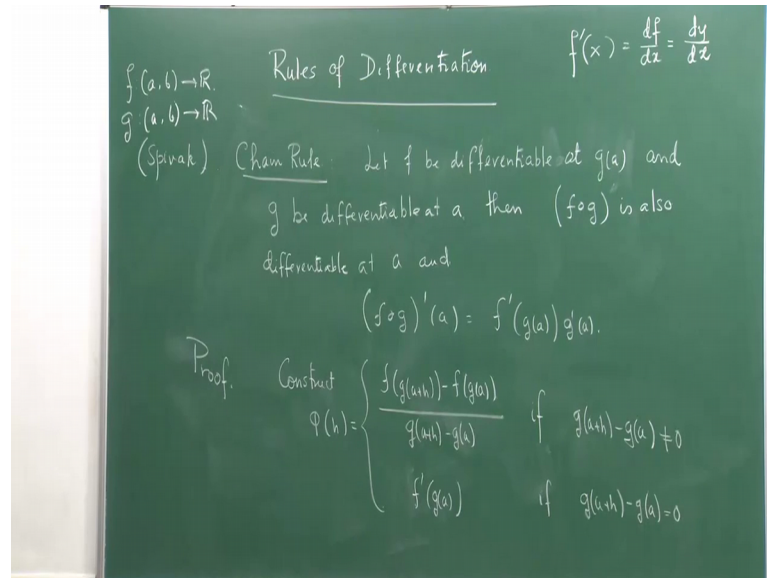 Rules of Differentiation
f'(x) = df/dx = dy/dx
f (a,b)→R.
g (a,b)→R
(Spivak) Chain Rule. Let f be differentiable at g(a) and
g be differentiable at a, then (f∘g) is also
differentiable at a and
(f∘g)'(a) = f'(g(a)) g'(a).
Proof. Construct
φ(h) = { f(g(a+h)) - f(g(a)) / g(a+h) - g(a) if g(a+h) - g(a) ≠ 0
f'(g(a)) if g(a+h) - g(a) = 0